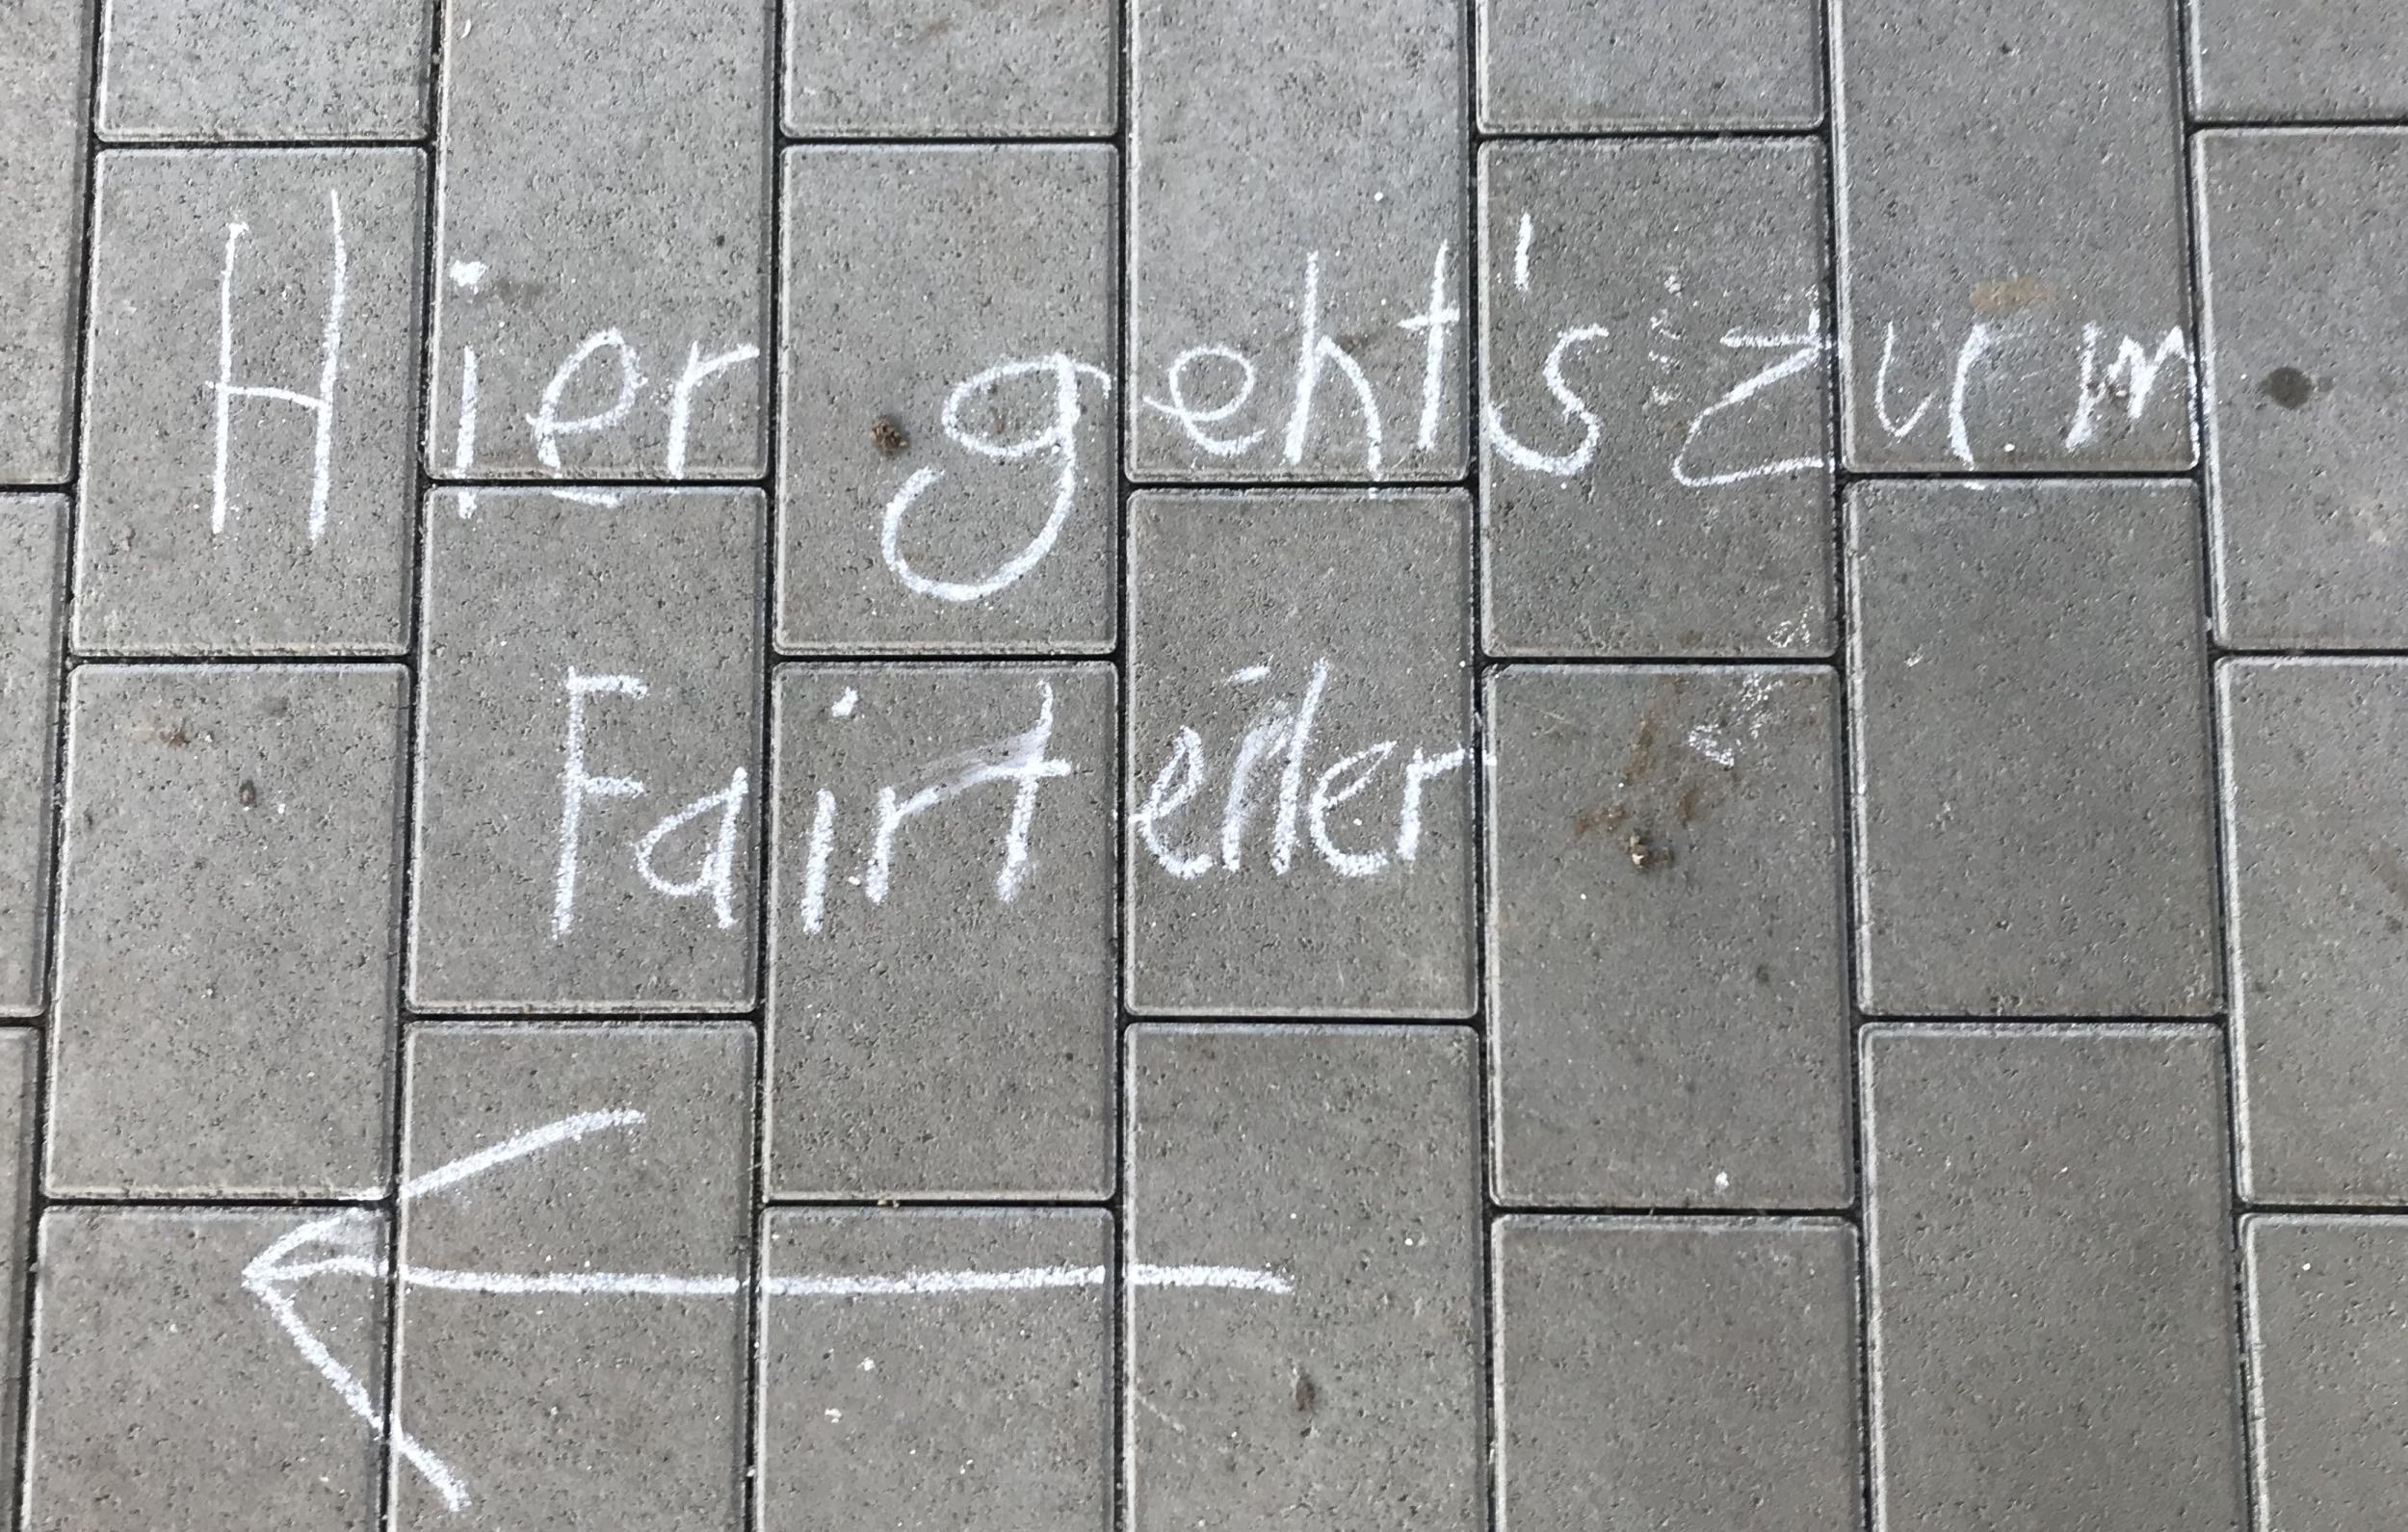 Hier geht's zum
Fairteiler